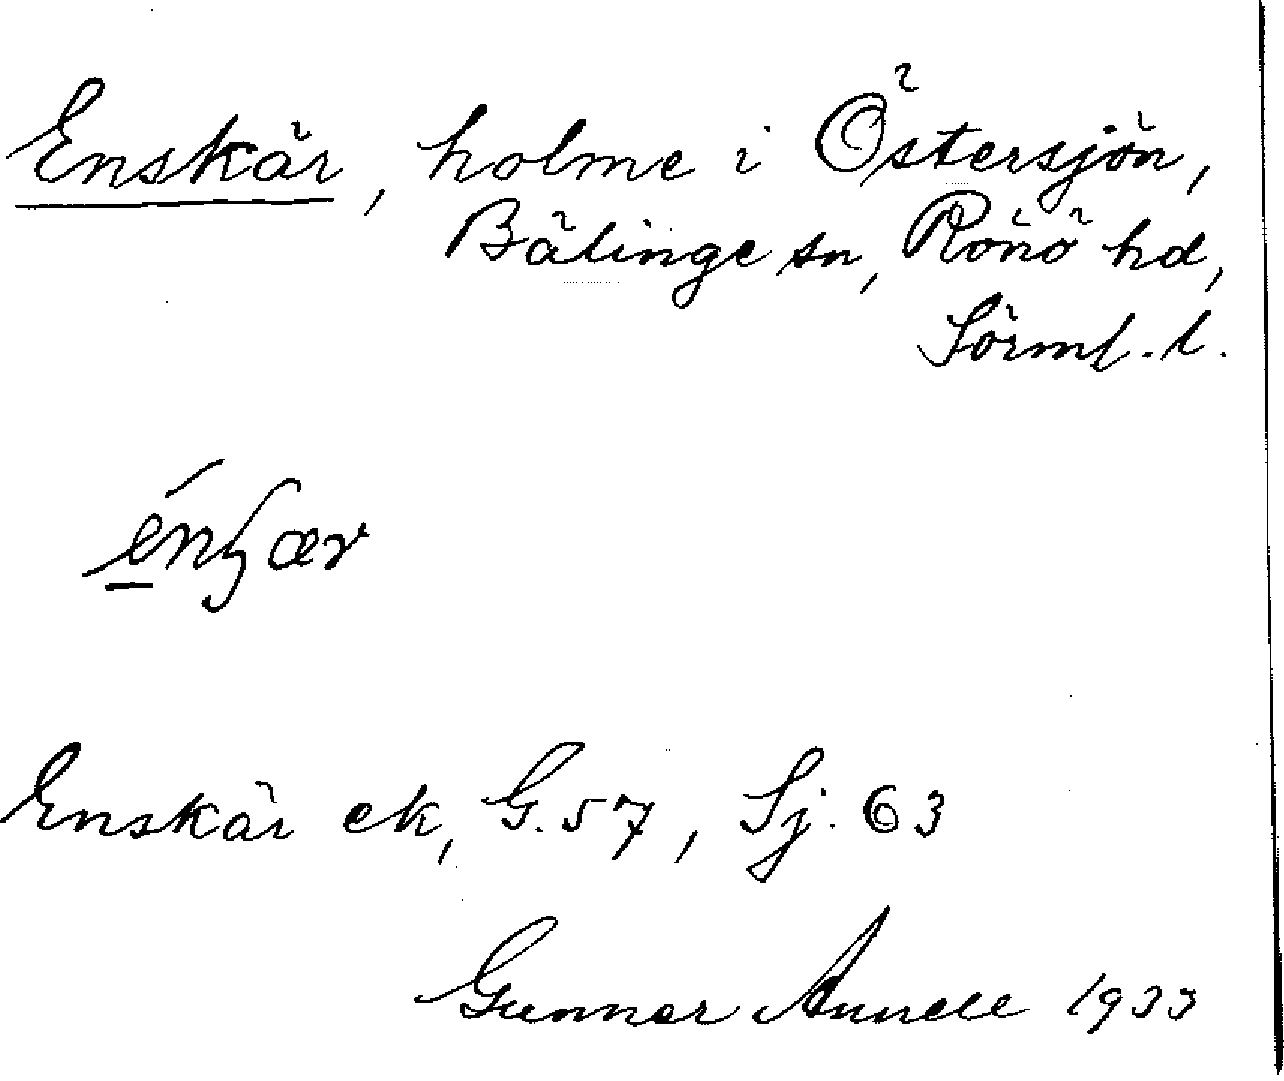 Enskär, holme i Östersjön,
Bälinge sn, Rönö hd,
Sörml. l.
énʂær
Enskär ek, G. 57, Sj. 63
Gunnar Annell 1933